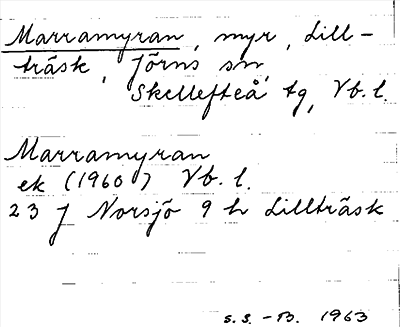 Marramyran, myr, Lill-
träsk, Jörns sn,
Skellefteå tg, Vb. l.
Marramyran
ek (1960) Vb. l.
23 J Norsjö 9 h Lillträsk
s.s. -B. 1963